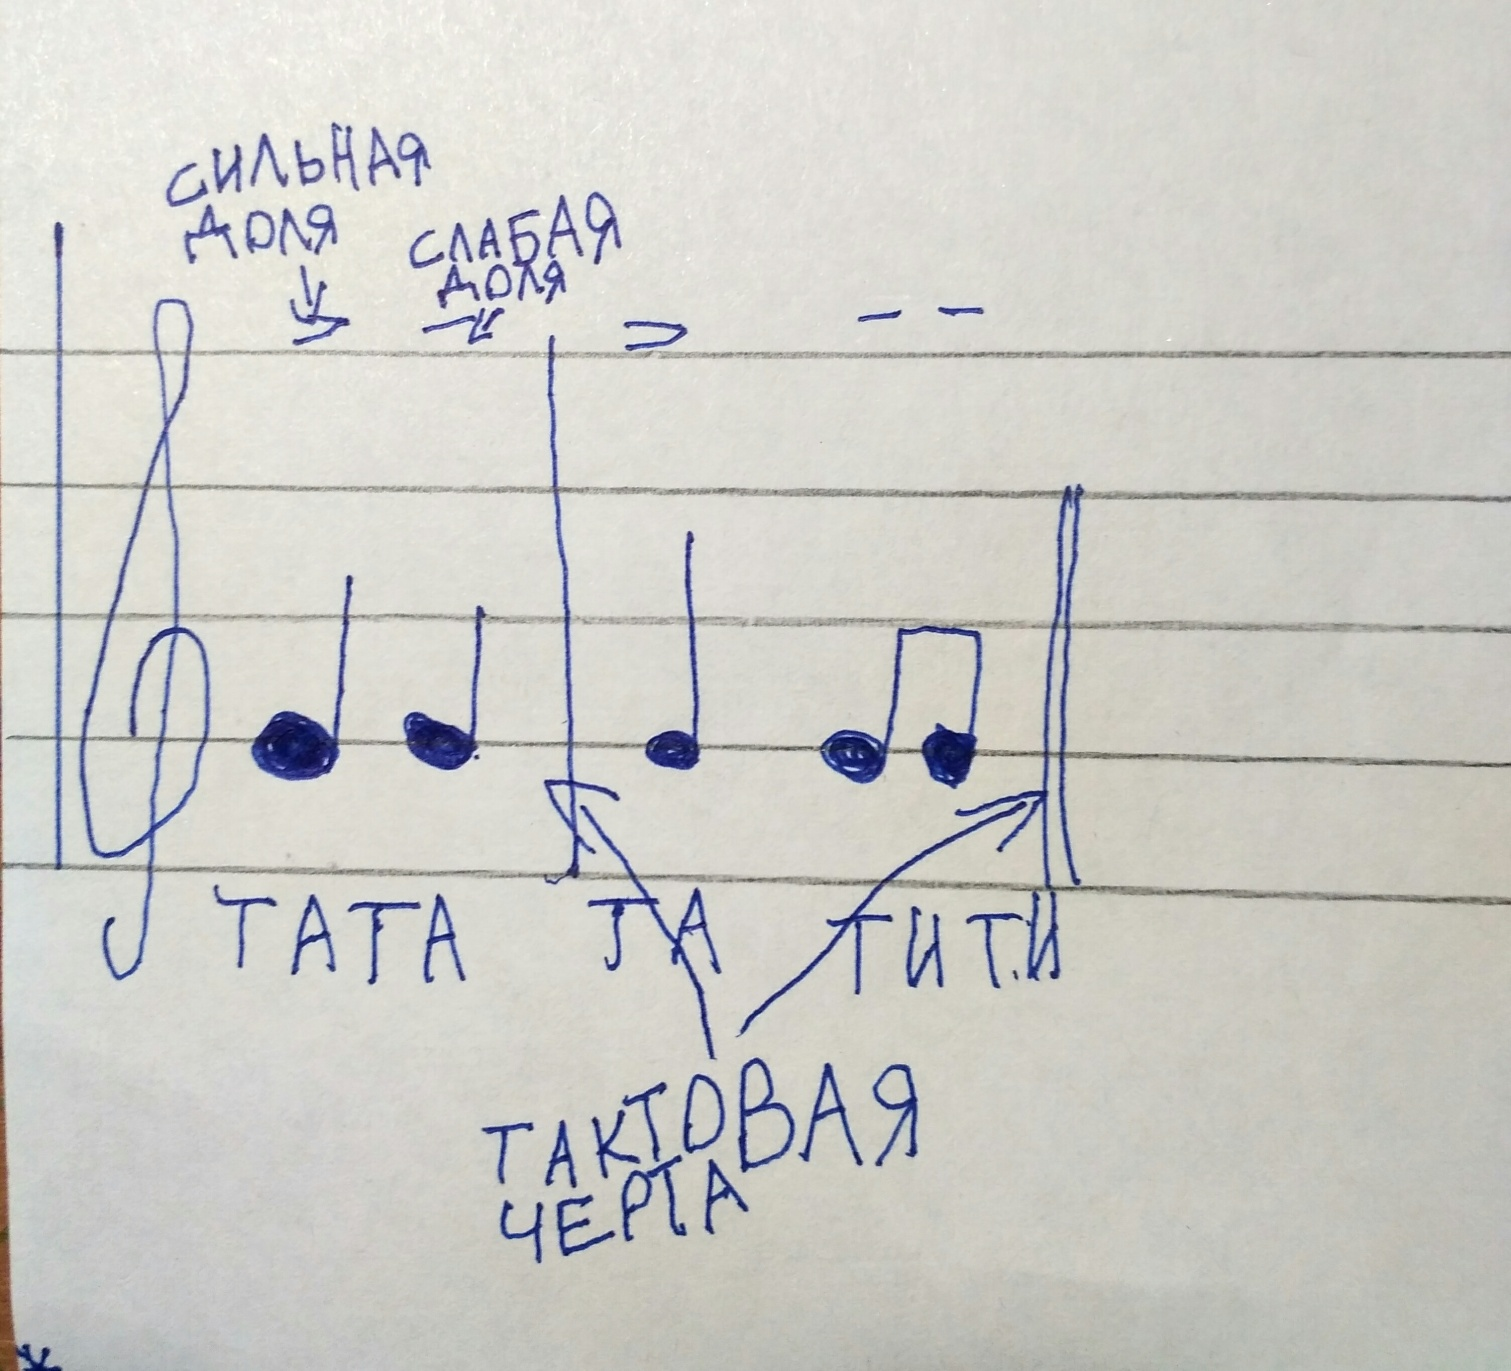 СИЛЬНАЯ
ДОЛЯ
СЛАБАЯ
ДОЛЯ
ТАТА ТА ТИТИ
ТАКТОВАЯ
ЧЕРТА